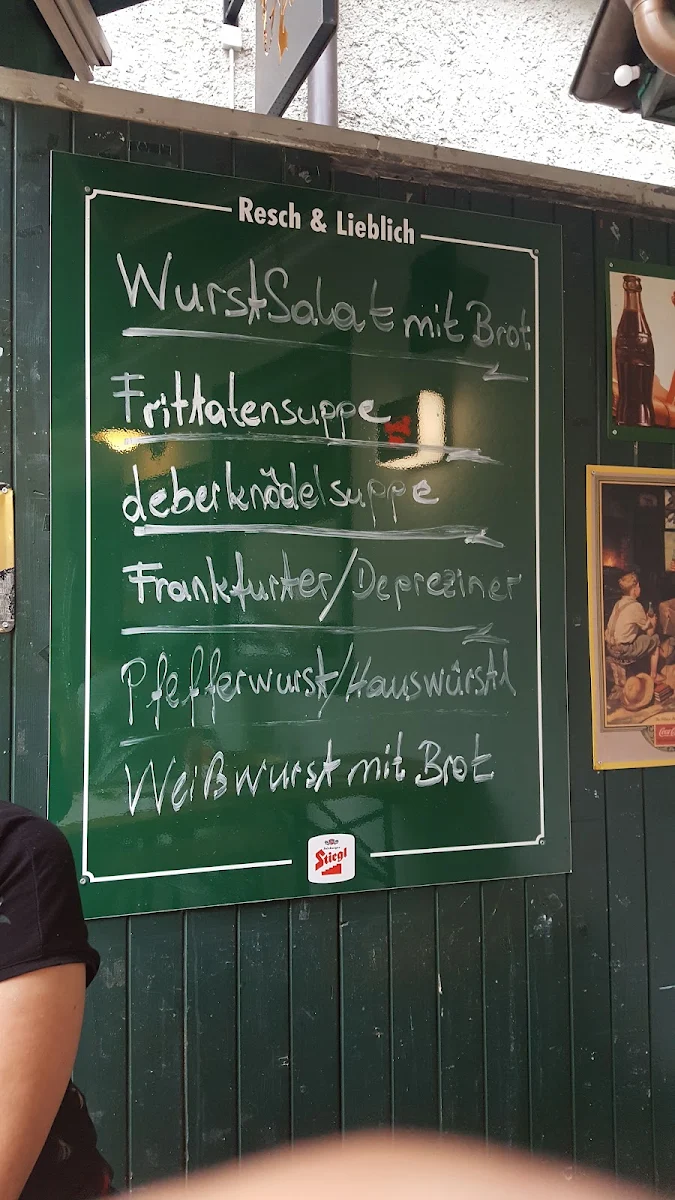 Resch & Lieblich
WurstSalat mit Brot
Frittatensuppe
deberknödelsuppe
Frankfurter/Depreziner
Pfefferwurst/Hauswürstl
Weißwurst mit Brot
Stiegl